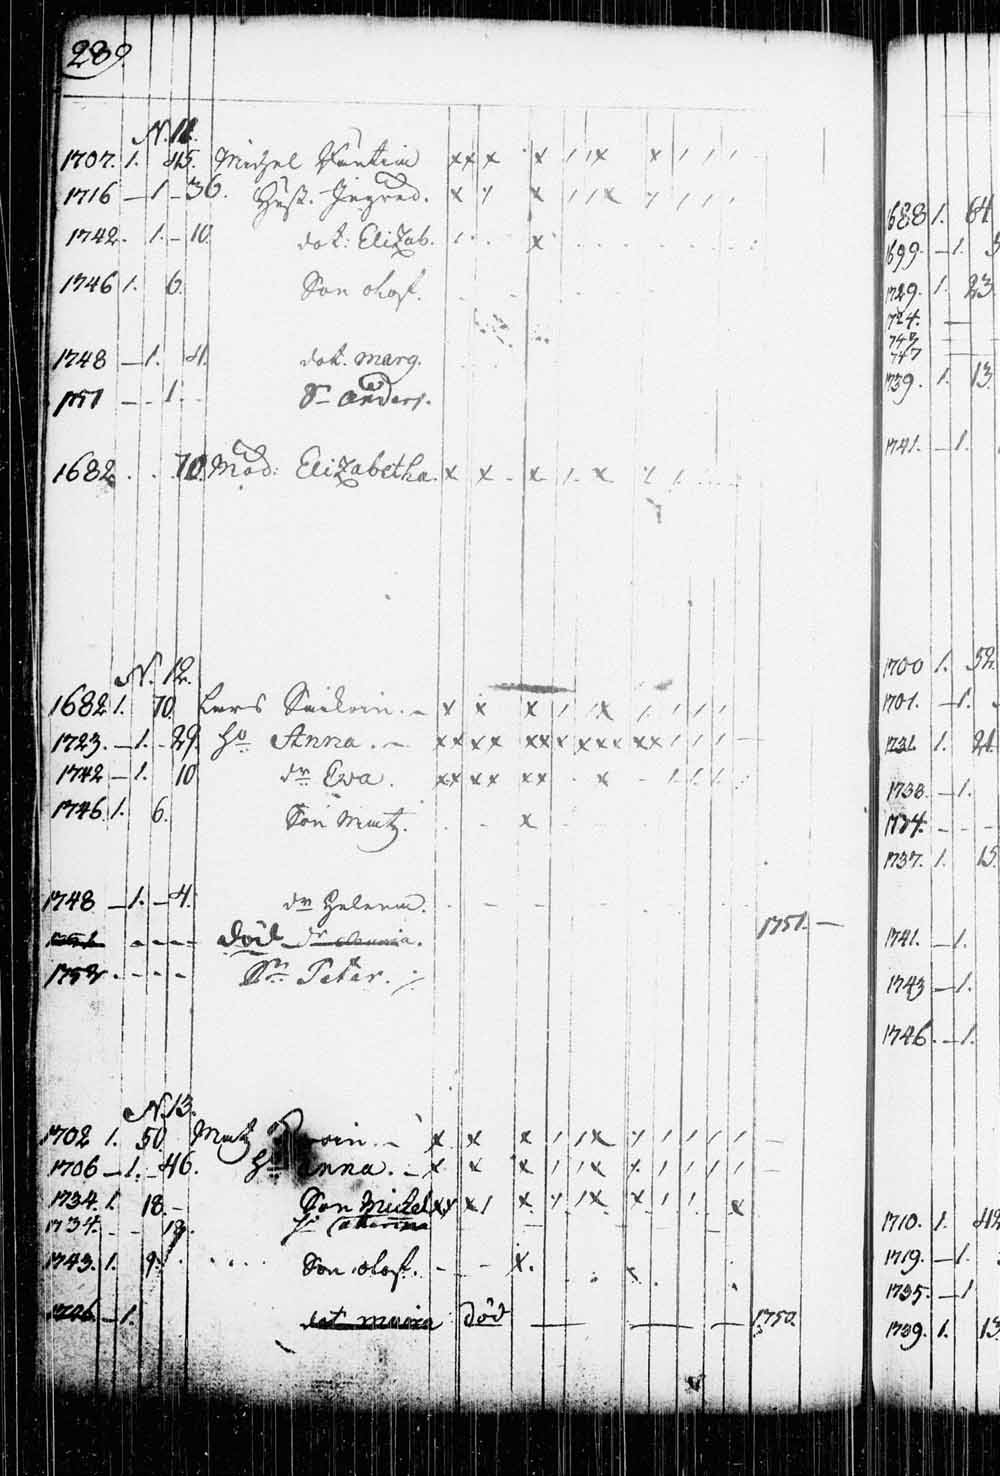 289.
N. 11.
1707. 1. 45. Michel x x x x 1 1 x x 1 1 1
1716 – 1 – 36. Hust. Ingred. x x 1 1 x 1 1 1
1742. 1. – 10. dot: Elizab. 1. x
1746 1. 6. Son olof.
1748 – 1. 4. dot. marg.
1751 – 1. S– anders.
1682 70. Mod: Elizabetha. x x – x 1 x 1
N. 12.
1682 1. 70. Lars x x x 1 1 x 1 1 1 1
1723. – 1. – 29. Hu Anna. – x x x x x x x x x x x x 1 1 1
1742 – 1. 10 dr Eva. x x x x x x x – 1 1 1
1746 1. 6. Son x
1748 – 1. – 4. dr Helena.
död dr 1751. –
1752. – – – – Sn Petar.
N. 13.
1702 1. 50. x x x 1 1 x 1 1 1 1
1706 – 1. – 46. H anna. – x x x 1 1 x 1 1 1 1
1734. 1. 18. – Son Michel x x x 1 x 1 1 x x 1 1 x
1734. – – 18. H Catarina
1743. 1. 9. Son olof. – – x.
1746 – 1. dot maria död 1750.
1688 1. 64
1699. – 1.
1729. 1. 23
1724. –
1747
1739. 1. 13
1741. – 1.
1700 1. 52.
1701. – 1.
1731. 1. 21.
1738. – 1.
1737. 1. 15.
1741. – 1.
1743 – 1.
1746. – 1.
1710. 1. 42
1719. – 1.
1735. – 1
1739. 1. 13